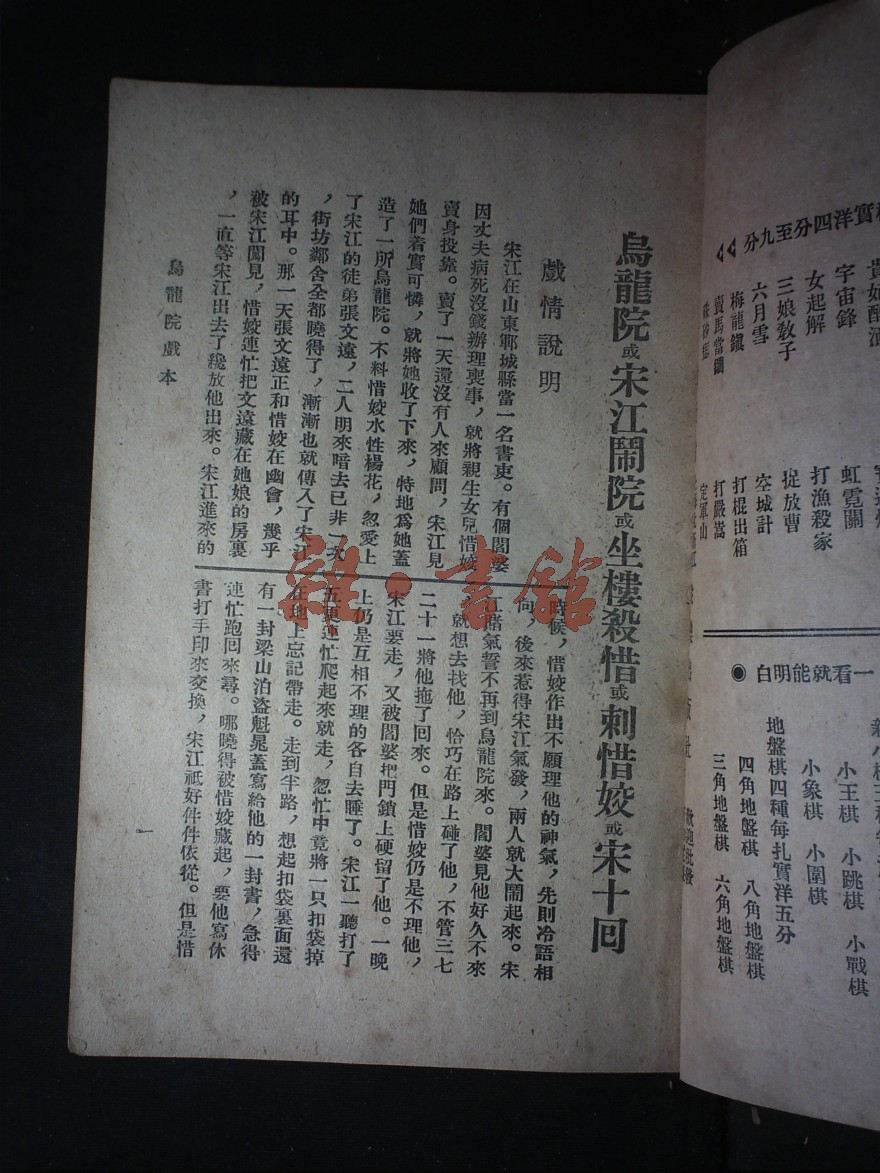 烏龍院或宋江鬧院或坐樓殺惜或刺惜姣或宋十回
戲情說明
宋江在山東鄆城縣當一名書吏。有個閻婆
因丈夫病死沒錢辦理喪事，就將親生女兒惜姣
賣身投靠。賣了一天還沒有人來顧問，宋江見
她們着實可憐，就將她收了下來，特地爲她蓋
造了一所烏龍院。不料惜姣水性楊花，忽愛上
了宋江的徒弟張文遠，二人明來暗去已非一次
，街坊鄰舍全都曉得了，漸漸也就傳入了宋江
的耳中。那一天張文遠正和惜姣在幽會，幾乎
被宋江闖見，惜姣連忙把文遠藏在她娘的房裏
，一直等宋江出去了纔放他出來。宋江進來的
時候，惜姣作出不願理他的神氣，先則冷語相
向，後來惹得宋江氣發，兩人就大鬧起來。宋
江賭氣誓不再到烏龍院來。閻婆見他好久不來
就想去找他，恰巧在路上碰了他，不管三七
二十一將他拖了回來。但是惜姣仍是不理他，
宋江要走，又被閻婆把門鎖上硬留了他。一晚
上仍是互相不理的各自去睡了。宋江一聽打了
五更連忙爬起來就走，忽忙中竟將一只扣袋掉
在地上忘記帶走。走到半路，想起扣袋裏面還
有一封梁山泊盜魁晁蓋寫給他的一封書，急得
連忙跑回來尋。哪曉得被惜姣藏起，要他寫休
書打手印來交換，宋江祇好件件依從。但是惜
烏龍院戲本
一
雜·書館
實洋四分至九分
宇宙鋒
女起解
三娘教子
六月雪
梅龍鎮
賣馬當鐧
虹霓關
打漁殺家
捉放曹
空城計
打棍出箱
打嚴嵩
定軍山
一看就能明白
小王棋 小跳棋 小戰棋
小象棋 小圍棋
地盤棋四種每扎實洋五分
四角地盤棋 八角地盤棋
三角地盤棋 六角地盤棋